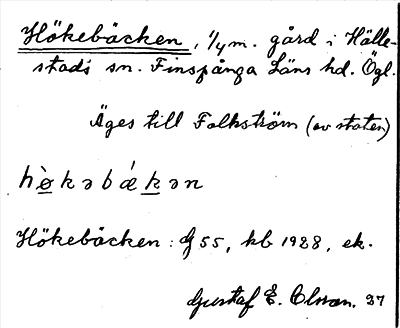 Hökebäcken, 1/4 m. gård i Hälle-
stads sn. Finspånga Läns hd. Ögl.
Äges till Folkström (av staten)
hø̀kəbǽkən
Hökebäcken: G 55, kb 1928, ek.
Gustaf E. Olsson. 37